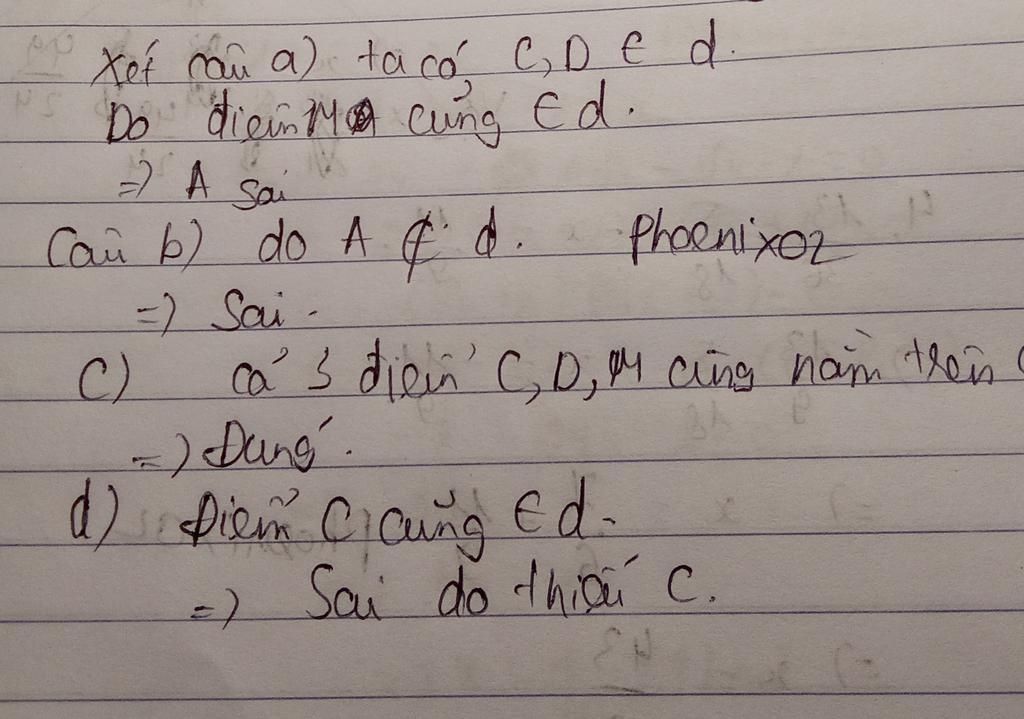 Xét câu a) ta có, C, D ∈ d.
Do điểm M cũng ∈ d.
=> A sai
Câu b) do A ∉ d. Phoenix02
=> Sai.
C) cả 3 điểm C, D, M cùng nằm trên
=> Đúng.
d) Điểm C cũng ∈ d.
=> Sai do thiếu C.